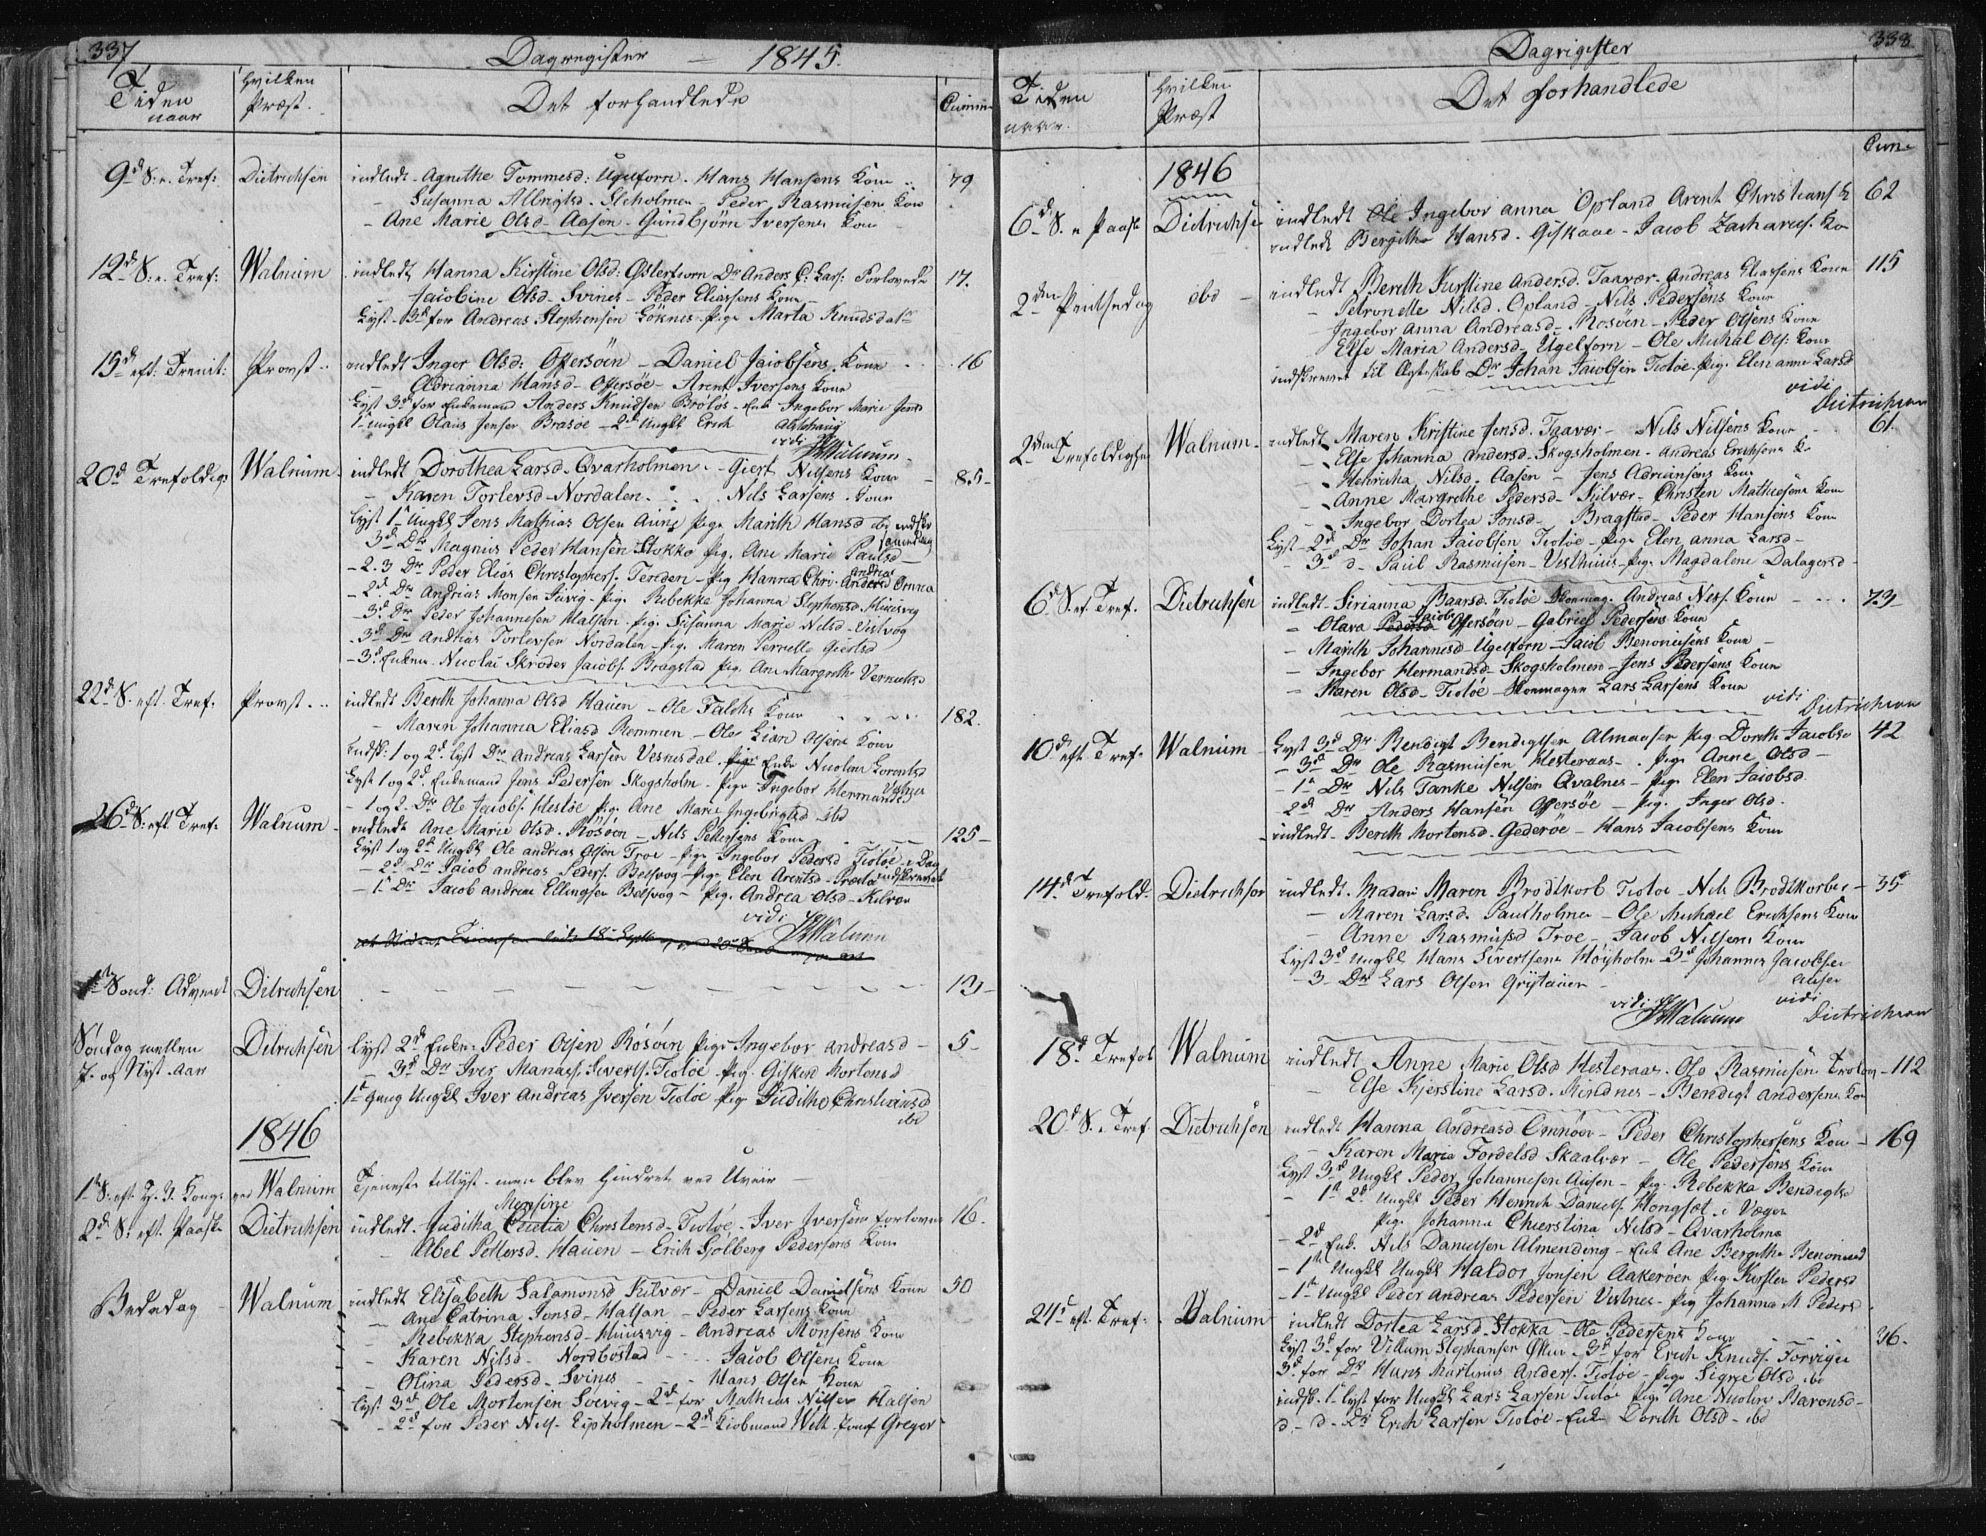 337
Dagregister — 1845.
Tiden naar
Hvilken Præst.
Det forhandlede
Cumm
9d S. e. Tref. Dietrichsen indledt Agnethe Tommesd: Ugelforn. Hans Hansens Kone 79
- Susanna Albrigtsd. Steholmen - Peder Rasmusens Kone
- Ane Marie Olsd. Aasen. Gundbjørn Iversens Kone
12d S. e. Tref: Walnum indledt Hanna Kirstine Olsd. Dr Anders C: Lars: Forlovede 17.
- Jacobine Olsd. Svines - Peder Eliassens Kone
Lyst 3d for Andreas Stephensen Loknes. pige Marta Knudsdatr
15d eft: Trenit: Provst indledt Inger Olsd: Offersøen - Daniel Jacobsens Kone 16
- Adrianna Hansd - Offersøe - Arent Iversens Kone
Lyst 3d for Enkemand Anders Knudsen Brøløs - Enke Ingebor Marie Jensd
1ste ungkl Olaus Jensen Brasøe - 2d Ungkl Erich
vidi Walnum
20d Trefoldigh Walnum indledt Dorothea Larsd. Qvarholmen - Giert Nilsens Kone 85
- Karen Torlevsd - Nordalen - Nils Larsens Kone
Lyst 1ste Ungkl Jens Mathias Olsen Aune pige Marith Hansd ibd
- 3d Dr Magnus Peder Hansen Stokka pig. Ane Marie Paulsd
- 2. 3 Dr Peder Elias Christophers. Tenden - pig Hanna Chri. Andrea Andersd Omnø
- 2d Dr Andrias Monsen - pig. Rebekka Johanna Stephensd. Huusvig
- 3d Dr Peder Johannesen Halsan. pig. Susanna Marie Nilsd. Vistvog
- 3d Dr Andrias Torlevsen Nordalen - pig. Maren Pernelle Giertsd
- 3d Enkem. Nicolai Skrøder Jacobs. Bragstad pig. Ane Margrethe
22d S. eft. Tref. Provst indledt Berith Johanna Olsd Hauen - Ole Falchs Kone 182.
- Maren Johanna Eliasd Remmen - Ole Olsens Kone
Indsk: 1 og 2d. Lyst Dr Andreas Larsen Vesnesdal. Enke Nicoline Lorentsd
Lyst 1 og 2d Enkemand Jens Pedersen Skogsholm - pige Ingebor Hermandsd
- 1 og 2. Dr Ole Jacobs. Hestøe pig. Ane Marie Ingebrigtsd ibd
26d S. eft Tref. Walnum indledt Ane Marie Olsd. Rosøen - Nils Pettersens Kone 125
Lyst 1 og 2d Ungkl Ole Andreas Olsen Troe - pige Ingebor Pedersd Tiotøe i Dag indskrevet
- 2d Dr Jacob Andreas Peders. Belsvog - pige Elen Arentsd.
- 1ste Dr Jacob Andreas Ellingsen Belsvog - pig. Andrea Olsd. Kilvær
vidi Walnum
1ste Sond: Advent Ditrichsen 131
Søndag mellem J. og Nyt. Aar Ditrichsen Lyst 2d Enkem Peder Olsen Rosøen pige Ingebor Andreasd 5
- 3d Dr Iver Manass. Siverts. Tiotøe pig. Gisken Mortensd
1ste Gang Ungkl Iver Andreas Iversen Tiotøe pige Juditha Christiansd ibd
1846
1ste S. eft H. 3. Konge ved Walnum Tjeneste tillyst men blev hindret ved Uveir
2d S. eft. Paaske Dietrichsen indledt. Juditha Monsine Christensd - Tiotøe - Iver Iversens forlovede 16.
- Abel Pettersd. Hauen - Erich Solberg Pedersens Kone
Bededag Walnum indledt Elisabeth Salamonsd Kilvær - Daniel Danielsens Kone 50
- Ane Catrina Jonsd - Halsan - Peder Larsens Kone
- Rebekka Stephensd - Huusvig - Andreas Monsens Kone
- Karen Nilsd - Nordbostad - Jacob Olsens Kone
- Olina Pedersd. Svines - Hans Olsen Kone
Lyst 3d Ole Mortensen Soevig - 2d for Mathias Nilsen Halsen
- 2d for Peder Nils. - 2d Willh. Josef Greger
338
Dagrigister
Tiden naar.
Hvilken Præst
Det forhandlede
Cum.
1846
6d S. e Paask Dietrichsen indledt Ingebor Anna Opland Arent Christians K 62
indledt Bergitha Hansd. Giskaae - Jacob Zacharies. Ko
2den Pintsedag ibd indledt Berith Kirstine Andersd. Taavær. Andreas Eliassens Kone 115
- Petronelle Nilsd. Opland - Nils Pedersens Kone
- Ingebor Anna Andreasd. Rosøen - Peder Olsens Kone
- Else Maria Andersd. Ugelforn - Ole Mikal Ols: Kone
indskrevet til Ægteskab Dr Johan Jacobsen Tiotøe. pig. Elen Anne Larsd
vidi Dietrichson
2den Trefoldighe Walnum indledt Maren Kristine Jensd. Taavær - Nils Nilsens Kone 61.
- Else Johanna Andersd. Skogsholmen - Andreas Erichsens K
- Henricha Nilsd. Aasen - Jens Adriansens Kone
- Anne Margrethe Pedersd - Kilvær - Christen Mathiesens Kone
- Ingebor Dortea Jonsd - Bragstad - Peder Hansens Kone
Lyst - 2d Dr Johan Jacobsen Tiotøe - pige Elen Anna Larsd -
- 3d d. Paul Rasmusen - Vesthuus - pige Magdalene Dalagersd
6d S. ef. Tref. Dietrichsen indledt Sirianna Baarsd. Tiotøe. Andreas Niss. Kone 79
- Olava Pedersd Jacobs Offersøen - Gabriel Pedersens Kone
- Marith Johannesd Ugelforn - Jacob Benoniesens Kone
- Ingebor Hermandsd - Skogsholmen - Jens Pedersens Kone
- Maren Olsd - Tiotøe - Lars Larsens Kone
vidi Dietrichson
10d eft Tref. Walnum Lyst 3d Dr Bendigt Bendigtsen Almaasen pig. Dorith Jacobsd 42
- 3d Dr Ole Rasmusen Hesteraas - pige Anne Olsd -
- 1ste Dr Nils Tanke Nilsen Qvalnes - pige Elen Jacobsd
- 2d Dr Anders Hansen Offersøe - pig. Inger Olsd.
indledt - Berith Mortensd. Gederøe - Hans Jacobsens Kone
14d Trefold. Dietrichson indledt. Madam Maren Brodtkorb Tiotøe - Nils Brodtkorbs 35
- Maren Larsd. Paulholmen - Ole Michael Erichsens Kone
- Anne Rasmusd Troe - Jacob Nilsens Kone
Lyst 3d Ungkl Hans Sivertsens Høyholm 3d Johannes Jacobsen
- 3 Dr Lars Olsen
vidi Walnum vidi Dietrichson
18d Trefol Walnum indledt Anne Marie Olsd Hesteraas. Ole Rasmusens Trolov 112
- Else Kjerstine Larsd. Mindnes - Bendigt Andersens Ko
20d S. e Tref Dietrichson indledt Hanna Andreasd Omnøen - Peder Christophersens Kone 169
- Karen Marie Tordelsd Skaalvær - Ole Pedersens Kone
Lyst 3d Ungkl Peder Johannesen - pig. Rebekka Bendigtsd
- 1ste 2d Ungkl Peder Henrich Daniels. Hongsæt i Vægen
pige Johanna Chierstina Nilsd - Qvarholme
- 2d Enk. Nils Danielsen Almending - Enk Ane Bergitha Benoniesd
- 1ste Ungkl Ungkl Haldor Jonsen Aakerøen pig. Kirsten Pedersd
- 1ste Ungkl Peder Andreas Pedersen Vistnes - pig Johanna M. Peders
24d eft. Tref. Walnum indledt Dortea Larsd. Stokka - Ole Pedersens Kone 36.
Lyst 3d for Villum Stephansen - 3d for Erich Knuds.
3d for Dr Hans Martinus Anders. Tiotøe - pige Signe Olsd ibd
indsk. 1ste Lyst for Ungkl Lars Larsen Tiotøe pig. Ane Nicoline Baronsd
d - d - Dr Erich Larsen Tiotøe - Enke Dorith Olsd - ibd